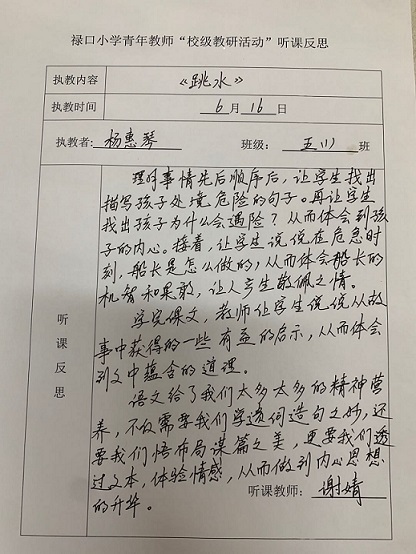 禄口小学青年教师“校级教研活动”听课反思
执教内容 《跳水》
执教时间 6月16日
执教者: 杨惠琴 班级: 五(1)班
听课反思
理清事情先后顺序后,让学生找出
描写孩子处境危险的句子。再让学生
找出孩子为什么会遇险?从而体会到孩
子的内心。接着,让学生说说在危急时
刻,船长是怎么做的,从而体会船长的
机智和果敢,让人产生敬佩之情。
学完课文,教师让学生说说从故
事中获得的一些有益的启示,从而体会
到文中蕴含的道理。
语文给了我们太多太多的精神营
养,不仅需要我们学遣词造句之妙,还
要我们悟布局谋篇之美,更要我们透
过文本,体验情感,从而做到内心思想
的升华。
听课教师: 谢婧